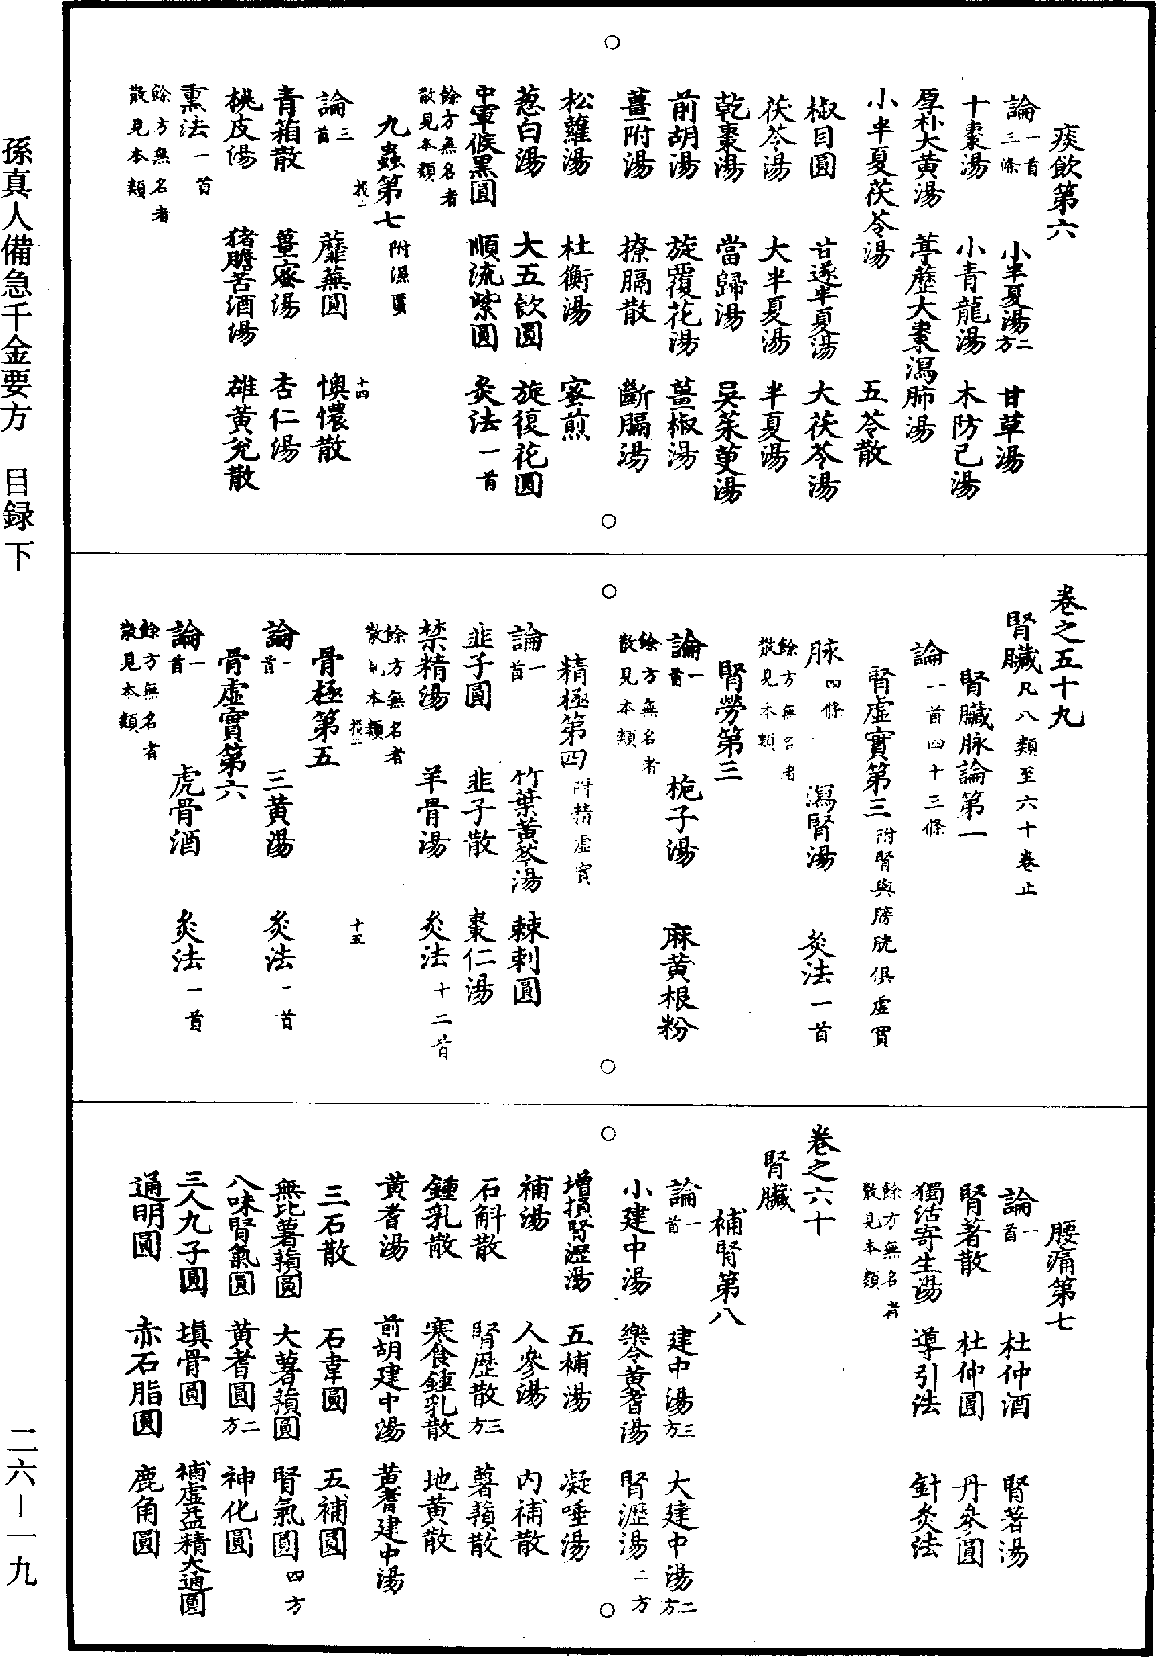 孫真人備急千金要方　目録下
二六－一九
痰飲第六
論一首三條　小半夏湯二方　甘草湯
十棗湯　小青龍湯　木防己湯
厚朴大黄湯　葶藶大棗瀉肺湯
小半夏茯苓湯　五苓散
椒目圓　甘遂半夏湯　大茯苓湯
茯苓湯　大半夏湯　半夏湯
乾棗湯　當歸湯　吴茱萸湯
前胡湯　旋覆花湯　薑椒湯
薑附湯　撩膈散　斷膈湯
松蘿湯　杜衡湯　蜜煎
葱白湯　大五飲圓　旋復花圓
中軍候黑圓　順流紫圓　灸法一首
餘方無名者散見本類
九蟲第七附濕䘌
論三首　蘼蕪圓　懊憹散
十四
青葙散　薑蜜湯　杏仁湯
桃皮湯　猪膽苦酒湯　雄黄兌散
熏法一首
餘方無名者散見本類
卷之五十九
腎臟凡八類至六十卷止
腎臟脉論第一
論一首四十三條
腎虚實第三附腎與膀胱俱虚實
脉四條　瀉腎湯　灸法一首
餘方無名者散見本類
腎勞第三
論一首　梔子湯　麻黄根粉
餘方無名者散見本類
精極第四附精虚實
論一首　竹葉黄芩湯　棘刺圓
韭子圓　韭子散　棗仁湯
禁精湯　羊骨湯　灸法十二首
餘方無名者散見本類
十五
骨極第五
論一首　三黄湯　灸法一首
骨虚實第六
論一首　虎骨酒　灸法一首
餘方無名者散見本類
腰痛第七
論一首　杜仲酒　腎著湯
腎著散　杜仲圓　丹參圓
獨活寄生湯　導引法　針灸法
餘方無名者散見本類
卷之六十
腎臟
補腎第八
論一首　建中湯三方　大建中湯二方
小建中湯　樂令黄耆湯　腎瀝湯二方
増損腎瀝湯　五補湯　凝唾湯
補湯　人參湯　内補散
石斛散　腎歴散三方　薯蕷散
鍾乳散　寒食鍾乳散　地黄散
黄耆湯　前胡建中湯　黄耆建中湯
三石散　石韋圓　五補圓
無比薯蕷圓　大薯蕷圓　腎氣圓四方
八味腎氣圓　黄耆圓二方　神化圓
三人九子圓　填骨圓　補虚益精大通圓
通明圓　赤石脂圓　鹿角圓